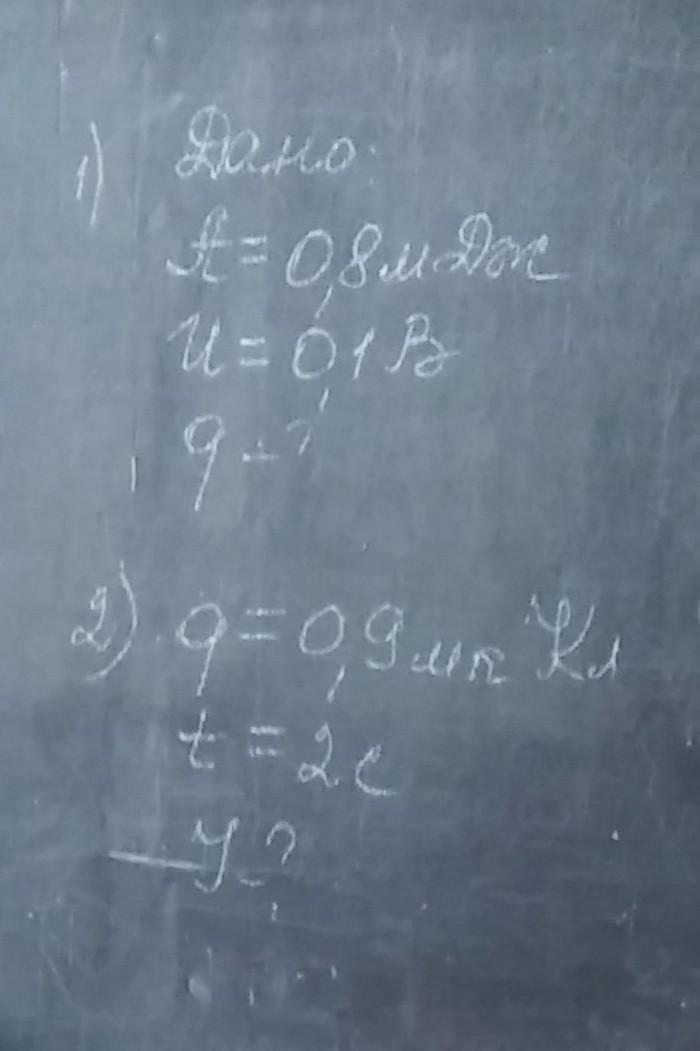 1) Дано:
A = 0,8 мДж
U = 0,1 В
q - ?
2) q = 0,9 мкКл
t = 2 с
У - ?